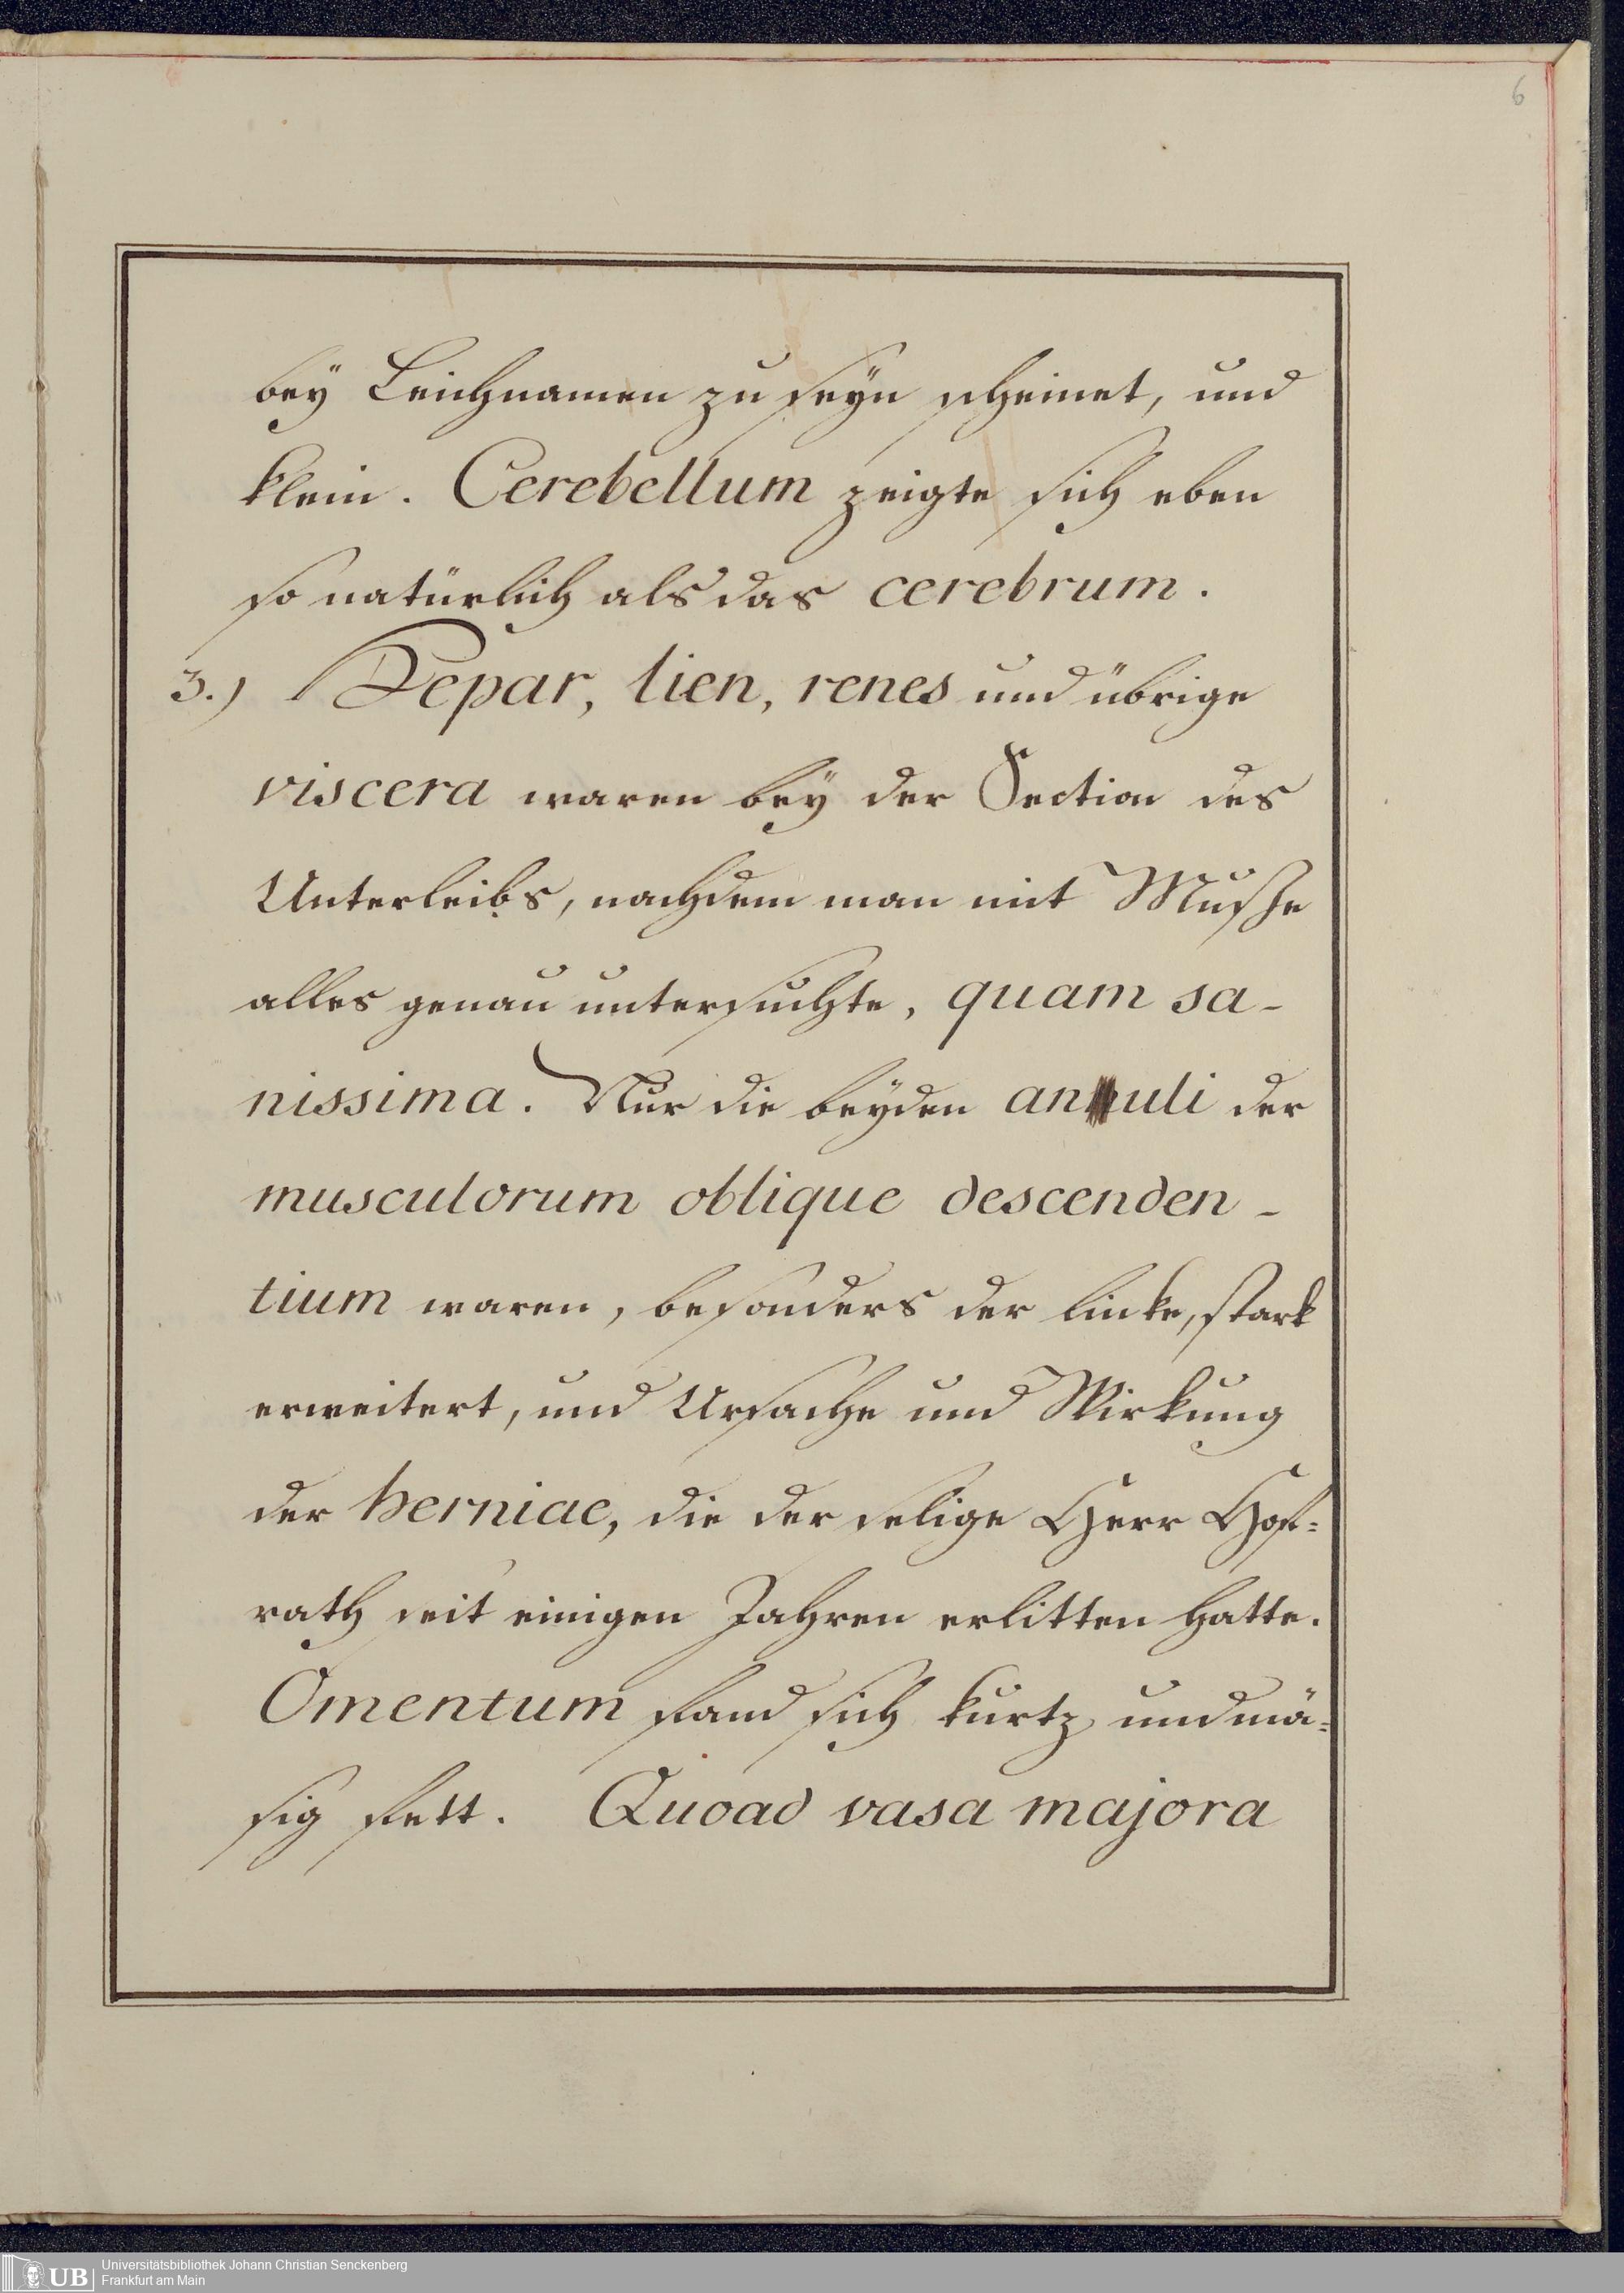 6
bey Leichnamen zu seÿn scheinet, und
klein. Cerebellum zeigte sich eben
so natürlich als das cerebrum.
3.) Hepar, lien, renes und übrige
viscera waren beÿ der Section des
Unterleibs, nachdem man mit Mushe
alles genau untersuchte, quam sa-
nissima. Nur die beÿden annuli der
musculorum oblique descenden-
tium waren, besonders der lincke, stark
erweitert, und Ursache und Wirkung
der herniae, die der selige Herr Hof=
rath seit einigen Jahren erlitten hatte.
Omentum fand sich kurtz und mä=
sig fett. Quoad vasa majora
UB Universitätsbibliothek Johann Christian Senckenberg
Frankfurt am Main